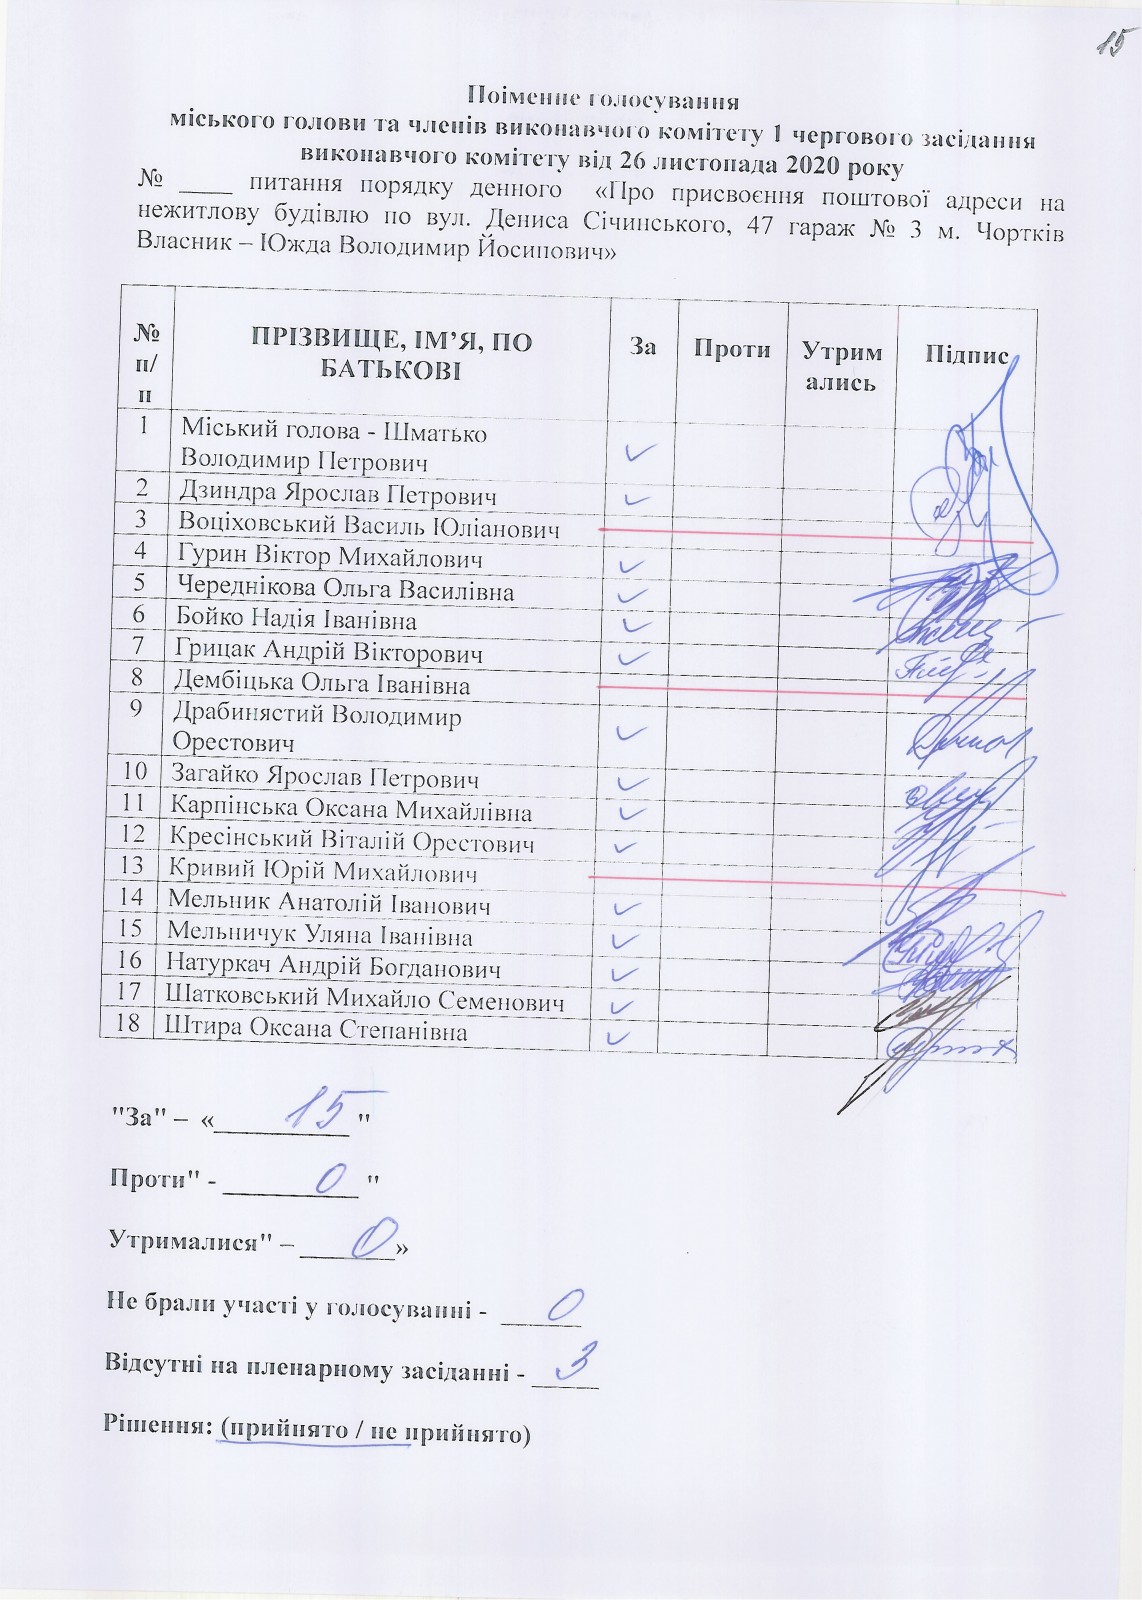 15
Поіменне голосування
міського голови та членів виконавчого комітету 1 чергового засідання
виконавчого комітету від 26 листопада 2020 року
№ ____ питання порядку денного «Про присвоєння поштової адреси на
нежитлову будівлю по вул. Дениса Січинського, 47 гараж № 3 м. Чортків
Власник – Южда Володимир Йосипович»
№ п/п ПРІЗВИЩЕ, ІМ’Я, ПО БАТЬКОВІ За Проти Утримались Підпис
1 Міський голова - Шматько
Володимир Петрович
2 Дзиндра Ярослав Петрович
3 Воціховський Василь Юліанович
4 Гурин Віктор Михайлович
5 Череднікова Ольга Василівна
6 Бойко Надія Іванівна
7 Грицак Андрій Вікторович
8 Дембіцька Ольга Іванівна
9 Драбинястий Володимир
Орестович
10 Загайко Ярослав Петрович
11 Карпінська Оксана Михайлівна
12 Кресінський Віталій Орестович
13 Кривий Юрій Михайлович
14 Мельник Анатолій Іванович
15 Мельничук Уляна Іванівна
16 Натуркач Андрій Богданович
17 Шатковський Михайло Семенович
18 Штира Оксана Степанівна
"За" – «15"
Проти" - 0 "
Утрималися" – 0»
Не брали участі у голосуванні - 0
Відсутні на пленарному засіданні - 3
Рішення: (прийнято / не прийнято)